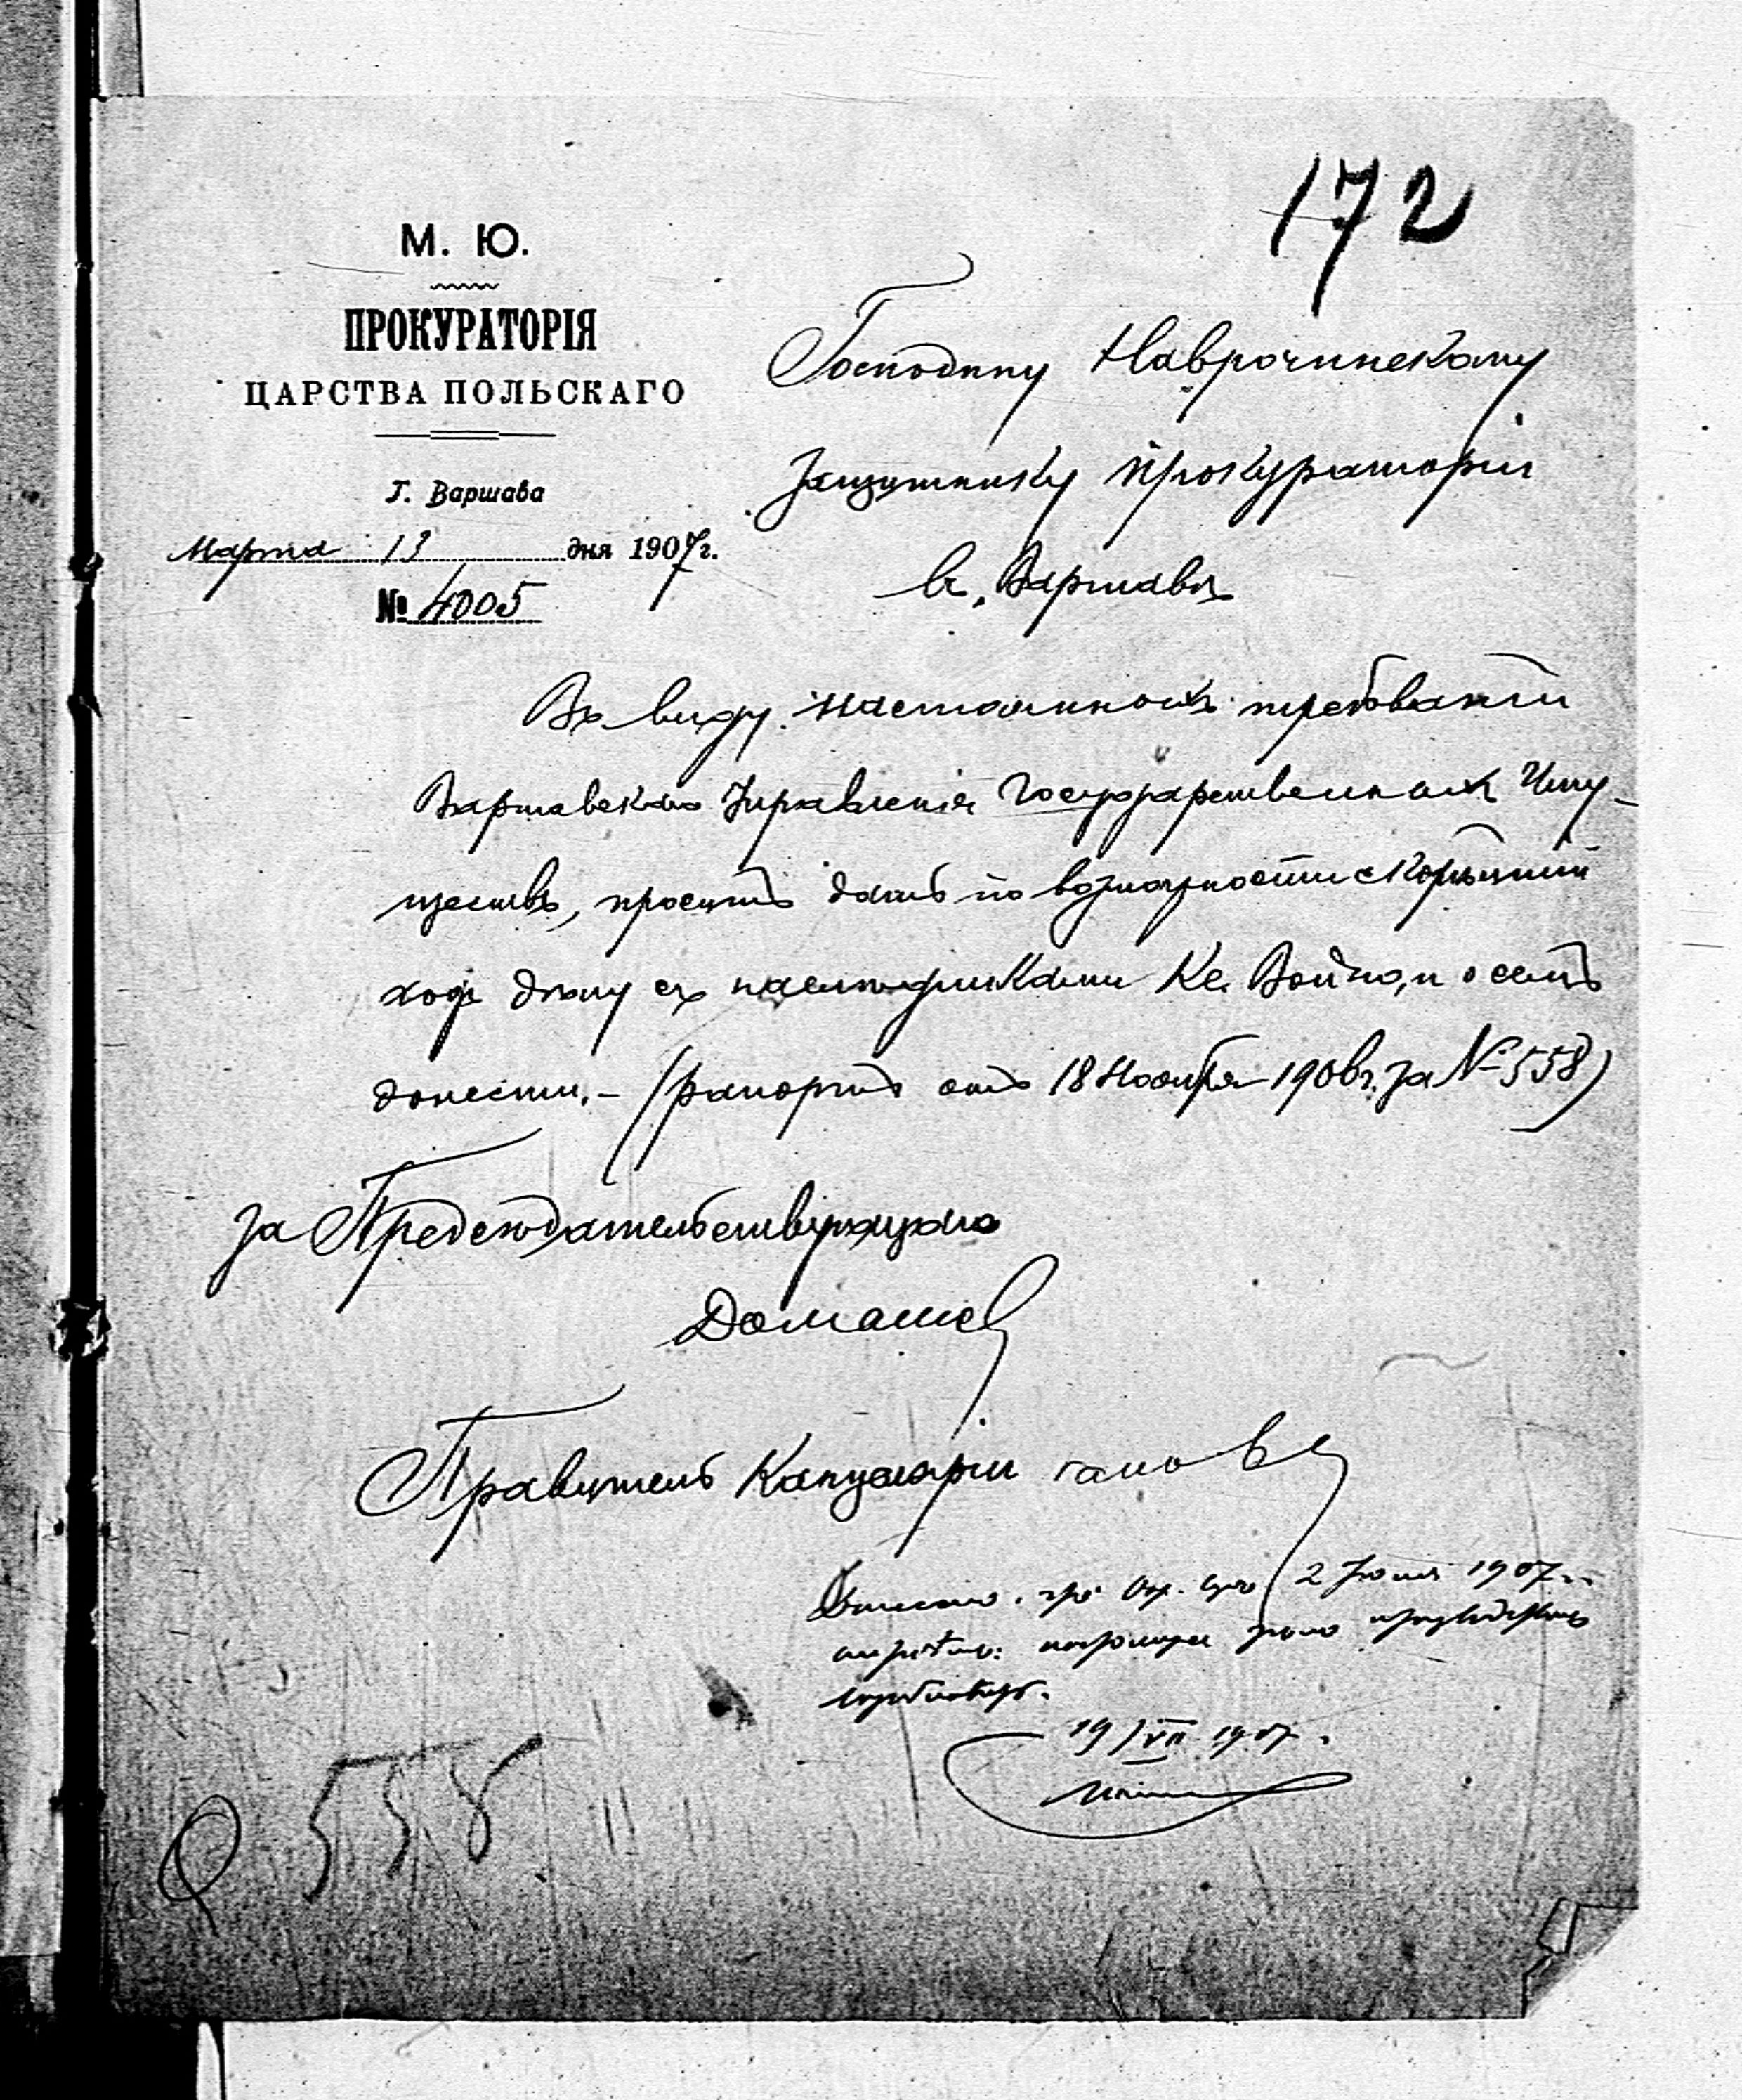 172
М. Ю.
ПРОКУРАТОРІЯ
ЦАРСТВА ПОЛЬСКАГО
Г. Варшава
Марта 13 дня 1907 г.
№ 4005
Господину Наврочинскому
Защитнику Прокураторіи
въ Варшавѣ
Въ виду настоятельныхъ требованій
Варшавскаго Управленія Государственныхъ Иму-
ществъ, проситъ дать по возможности скорѣйшій
ходъ дѣлу съ наслѣдниками Кс. Войно, и о семъ
донести. – (рапортъ отъ 18 Ноября 1906 г. за № 558)
За Предсѣдательствующаго
Домашев
Правитель Канцеляріи
2 Іюня 1907 г.
19/VII 1907.
558